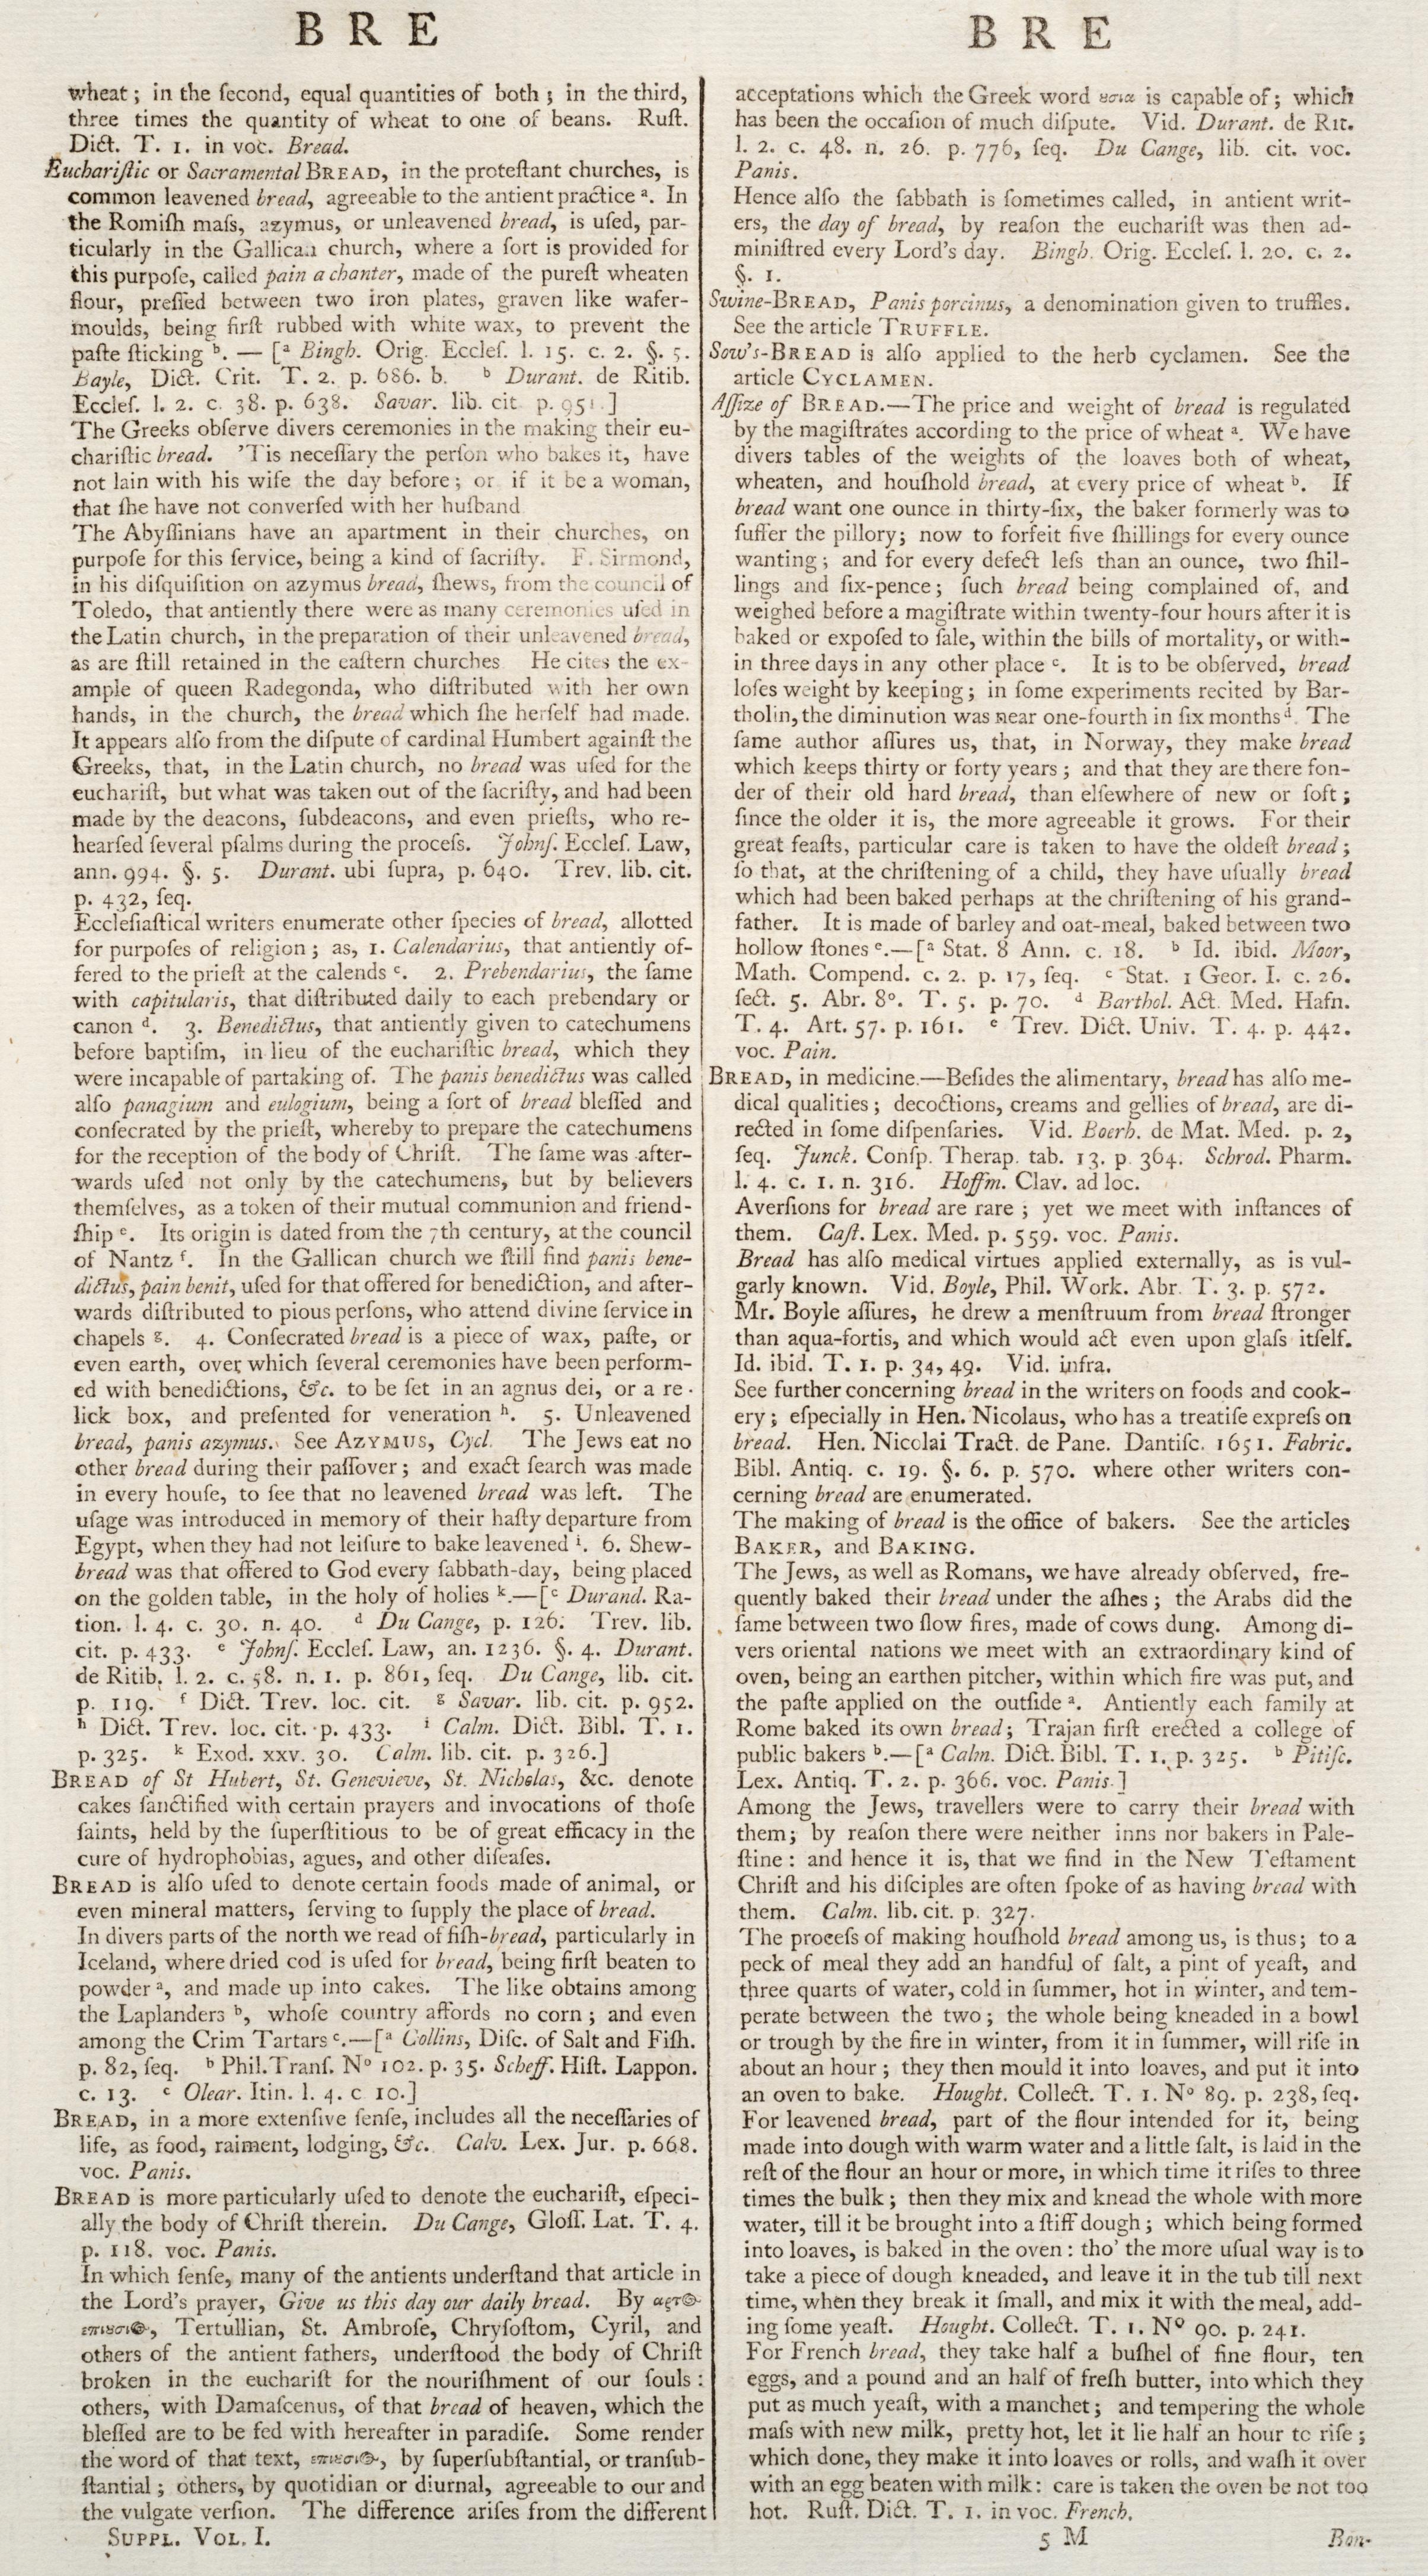 B R E
wheat; in the ſecond, equal quantities of both; in the third,
three times the quantity of wheat to one of beans. Ruſt.
Dict. T. 1. in voc. Bread.
Euchariſtic or Sacramental BREAD, in the proteſtant churches, is
common leavened bread, agreeable to the antient practice ᵃ. In
the Romiſh maſs, azymus, or unleavened bread, is uſed, par-
ticularly in the Gallican church, where a ſort is provided for
this purpoſe, called pain a chanter, made of the pureſt wheaten
flour, preſſed between two iron plates, graven like wafer-
moulds, being firſt rubbed with white wax, to prevent the
paſte ſticking ᵇ. — [ᵃ Bingh. Orig. Eccleſ. l. 15. c. 2. §. 5.
Bayle, Dict. Crit. T. 2. p. 686. b. ᵇ Durant. de Ritib.
Eccleſ. l. 2. c. 38. p. 638. Savar. lib. cit. p. 951.]
The Greeks obſerve divers ceremonies in the making their eu-
chariſtic bread. 'Tis neceſſary the perſon who bakes it, have
not lain with his wife the day before; or if it be a woman,
that ſhe have not converſed with her huſband
The Abyſſinians have an apartment in their churches, on
purpoſe for this ſervice, being a kind of ſacriſty. F. Sirmond,
in his diſquiſition on azymus bread, ſhews, from the council of
Toledo, that antiently there were as many ceremonies uſed in
the Latin church, in the preparation of their unleavened bread,
as are ſtill retained in the eaſtern churches He cites the ex-
ample of queen Radegonda, who diſtributed with her own
hands, in the church, the bread which ſhe herſelf had made.
It appears alſo from the diſpute of cardinal Humbert againſt the
Greeks, that, in the Latin church, no bread was uſed for the
euchariſt, but what was taken out of the ſacriſty, and had been
made by the deacons, ſubdeacons, and even prieſts, who re-
hearſed ſeveral pſalms during the proceſs. Johnſ. Eccleſ. Law,
ann. 994. §. 5. Durant. ubi ſupra, p. 640. Trev. lib. cit.
p. 432, ſeq.
Eccleſiaſtical writers enumerate other ſpecies of bread, allotted
for purpoſes of religion; as, 1. Calendarius, that antiently of-
fered to the prieſt at the calends ᶜ. 2. Prebendarius, the ſame
with capitularis, that diſtributed daily to each prebendary or
canon ᵈ. 3. Benedictus, that antiently given to catechumens
before baptiſm, in lieu of the euchariſtic bread, which they
were incapable of partaking of. The panis benedictus was called
alſo panagium and eulogium, being a ſort of bread bleſſed and
conſecrated by the prieſt, whereby to prepare the catechumens
for the reception of the body of Chriſt. The ſame was after-
wards uſed not only by the catechumens, but by believers
themſelves, as a token of their mutual communion and friend-
ſhip ᵉ. Its origin is dated from the 7th century, at the council
of Nantz ᶠ. In the Gallican church we ſtill find panis bene-
dictus, pain benit, uſed for that offered for benediction, and after-
wards diſtributed to pious perſons, who attend divine ſervice in
chapels ᵍ. 4. Conſecrated bread is a piece of wax, paſte, or
even earth, over which ſeveral ceremonies have been perform-
ed with benedictions, &c. to be ſet in an agnus dei, or a re-
lick box, and preſented for veneration ʰ. 5. Unleavened
bread, panis azymus. See AZYMUS, Cycl. The Jews eat no
other bread during their paſſover; and exact ſearch was made
in every houſe, to ſee that no leavened bread was left. The
uſage was introduced in memory of their haſty departure from
Egypt, when they had not leiſure to bake leavened ⁱ. 6. Shew-
bread was that offered to God every ſabbath-day, being placed
on the golden table, in the holy of holies ᵏ.—[ᶜ Durand. Ra-
tion. l. 4. c. 30. n. 40. ᵈ Du Cange, p. 126. Trev. lib.
cit. p. 433. ᵉ Johnſ. Eccleſ. Law, an. 1236. §. 4. Durant.
de Ritib. l. 2. c. 58. n. 1. p. 861, ſeq. Du Cange, lib. cit.
p. 119. ᶠ Dict. Trev. loc. cit. ᵍ Savar. lib. cit. p. 952.
ʰ Dict. Trev. loc. cit. p. 433. ⁱ Calm. Dict. Bibl. T. 1.
p. 325. ᵏ Exod. xxv. 30. Calm. lib. cit. p. 326.]
BREAD of St Hubert, St. Genevieve, St. Nicholas, &c. denote
cakes ſanctified with certain prayers and invocations of thoſe
ſaints, held by the ſuperſtitious to be of great efficacy in the
cure of hydrophobias, agues, and other diſeaſes.
BREAD is alſo uſed to denote certain foods made of animal, or
even mineral matters, ſerving to ſupply the place of bread.
In divers parts of the north we read of fiſh-bread, particularly in
Iceland, where dried cod is uſed for bread, being firſt beaten to
powder ᵃ, and made up into cakes. The like obtains among
the Laplanders ᵇ, whoſe country affords no corn; and even
among the Crim Tartars ᶜ.—[ᵃ Collins, Diſc. of Salt and Fiſh.
p. 82, ſeq. ᵇ Phil. Tranſ. Nº 102. p. 35. Scheff. Hiſt. Lappon.
c. 13. ᶜ Olear. Itin. l. 4. c 10.]
BREAD, in a more extenſive ſenſe, includes all the neceſſaries of
life, as food, raiment, lodging, &c. Calv. Lex. Jur. p. 668.
voc. Panis.
BREAD is more particularly uſed to denote the euchariſt, eſpeci-
ally the body of Chriſt therein. Du Cange, Gloſſ. Lat. T. 4.
p. 118. voc. Panis.
In which ſenſe, many of the antients underſtand that article in
the Lord's prayer, Give us this day our daily bread. By αρτος
επιουσιος, Tertullian, St. Ambroſe, Chryſoſtom, Cyril, and
others of the antient fathers, underſtood the body of Chriſt
broken in the euchariſt for the nouriſhment of our ſouls:
others, with Damaſcenus, of that bread of heaven, which the
bleſſed are to be fed with hereafter in paradiſe. Some render
the word of that text, επιουσιος, by ſuperſubſtantial, or tranſub-
ſtantial; others, by quotidian or diurnal, agreeable to our and
the vulgate verſion. The difference ariſes from the different
SUPPL. VOL. I.
B R E
acceptations which the Greek word ουσια is capable of; which
has been the occaſion of much diſpute. Vid. Durant. de Rit.
l. 2. c. 48. n. 26. p. 776, ſeq. Du Cange, lib. cit. voc.
Panis.
Hence alſo the ſabbath is ſometimes called, in antient writ-
ers, the day of bread, by reaſon the euchariſt was then ad-
miniſtred every Lord's day. Bingh. Orig. Eccleſ. l. 20. c. 2.
§. 1.
Swine-BREAD, Panis porcinus, a denomination given to truffles.
See the article TRUFFLE.
Sow's-BREAD is alſo applied to the herb cyclamen. See the
article CYCLAMEN.
Aſſize of BREAD.—The price and weight of bread is regulated
by the magiſtrates according to the price of wheat ᵃ. We have
divers tables of the weights of the loaves both of wheat,
wheaten, and houſhold bread, at every price of wheat ᵇ. If
bread want one ounce in thirty-ſix, the baker formerly was to
ſuffer the pillory; now to forfeit five ſhillings for every ounce
wanting; and for every defect leſs than an ounce, two ſhil-
lings and ſix-pence; ſuch bread being complained of, and
weighed before a magiſtrate within twenty-four hours after it is
baked or expoſed to ſale, within the bills of mortality, or with-
in three days in any other place ᶜ. It is to be obſerved, bread
loſes weight by keeping; in ſome experiments recited by Bar-
tholin, the diminution was near one-fourth in ſix months ᵈ. The
ſame author aſſures us, that, in Norway, they make bread
which keeps thirty or forty years; and that they are there fon-
der of their old hard bread, than elſewhere of new or ſoft;
ſince the older it is, the more agreeable it grows. For their
great feaſts, particular care is taken to have the oldeſt bread;
ſo that, at the chriſtening of a child, they have uſually bread
which had been baked perhaps at the chriſtening of his grand-
father. It is made of barley and oat-meal, baked between two
hollow ſtones ᵉ.—[ᵃ Stat. 8 Ann. c. 18. ᵇ Id. ibid. Moor,
Math. Compend. c. 2. p. 17, ſeq. ᶜ Stat. 1 Geor. I. c. 26.
ſect. 5. Abr. 8º. T. 5. p. 70. ᵈ Barthol. Act. Med. Hafn.
T. 4. Art. 57. p. 161. ᵉ Trev. Dict. Univ. T. 4. p. 442.
voc. Pain.
BREAD, in medicine.—Beſides the alimentary, bread has alſo me-
dical qualities; decoctions, creams and gellies of bread, are di-
rected in ſome diſpenſaries. Vid. Boerh. de Mat. Med. p. 2,
ſeq. Junck. Conſp. Therap. tab. 13. p. 364. Schrod. Pharm.
l. 4. c. 1. n. 316. Hoffm. Clav. ad loc.
Averſions for bread are rare; yet we meet with inſtances of
them. Caſt. Lex. Med. p. 559. voc. Panis.
Bread has alſo medical virtues applied externally, as is vul-
garly known. Vid. Boyle, Phil. Work. Abr. T. 3. p. 572.
Mr. Boyle aſſures, he drew a menſtruum from bread ſtronger
than aqua-fortis, and which would act even upon glaſs itſelf.
Id. ibid. T. 1. p. 34, 49. Vid. infra.
See further concerning bread in the writers on foods and cook-
ery; eſpecially in Hen. Nicolaus, who has a treatiſe expreſs on
bread. Hen. Nicolai Tract. de Pane. Dantiſc. 1651. Fabric.
Bibl. Antiq. c. 19. §. 6. p. 570. where other writers con-
cerning bread are enumerated.
The making of bread is the office of bakers. See the articles
BAKER, and BAKING.
The Jews, as well as Romans, we have already obſerved, fre-
quently baked their bread under the aſhes; the Arabs did the
ſame between two ſlow fires, made of cows dung. Among di-
vers oriental nations we meet with an extraordinary kind of
oven, being an earthen pitcher, within which fire was put, and
the paſte applied on the outſide ᵃ. Antiently each family at
Rome baked its own bread; Trajan firſt erected a college of
public bakers ᵇ.—[ᵃ Calm. Dict. Bibl. T. 1. p. 325. ᵇ Pitiſc.
Lex. Antiq. T. 2. p. 366. voc. Panis.]
Among the Jews, travellers were to carry their bread with
them; by reaſon there were neither inns nor bakers in Pale-
ſtine: and hence it is, that we find in the New Teſtament
Chriſt and his diſciples are often ſpoke of as having bread with
them. Calm. lib. cit. p. 327.
The proceſs of making houſhold bread among us, is thus; to a
peck of meal they add an handful of ſalt, a pint of yeaſt, and
three quarts of water, cold in ſummer, hot in winter, and tem-
perate between the two; the whole being kneaded in a bowl
or trough by the fire in winter, from it in ſummer, will riſe in
about an hour; they then mould it into loaves, and put it into
an oven to bake. Hought. Collect. T. 1. Nº 89. p. 238, ſeq.
For leavened bread, part of the flour intended for it, being
made into dough with warm water and a little ſalt, is laid in the
reſt of the flour an hour or more, in which time it riſes to three
times the bulk; then they mix and knead the whole with more
water, till it be brought into a ſtiff dough; which being formed
into loaves, is baked in the oven: tho' the more uſual way is to
take a piece of dough kneaded, and leave it in the tub till next
time, when they break it ſmall, and mix it with the meal, add-
ing ſome yeaſt. Hought. Collect. T. 1. Nº 90. p. 241.
For French bread, they take half a buſhel of fine flour, ten
eggs, and a pound and an half of freſh butter, into which they
put as much yeaſt, with a manchet; and tempering the whole
maſs with new milk, pretty hot, let it lie half an hour to riſe;
which done, they make it into loaves or rolls, and waſh it over
with an egg beaten with milk: care is taken the oven be not too
hot. Ruſt. Dict. T. 1. in voc. French.
5 M Bon-